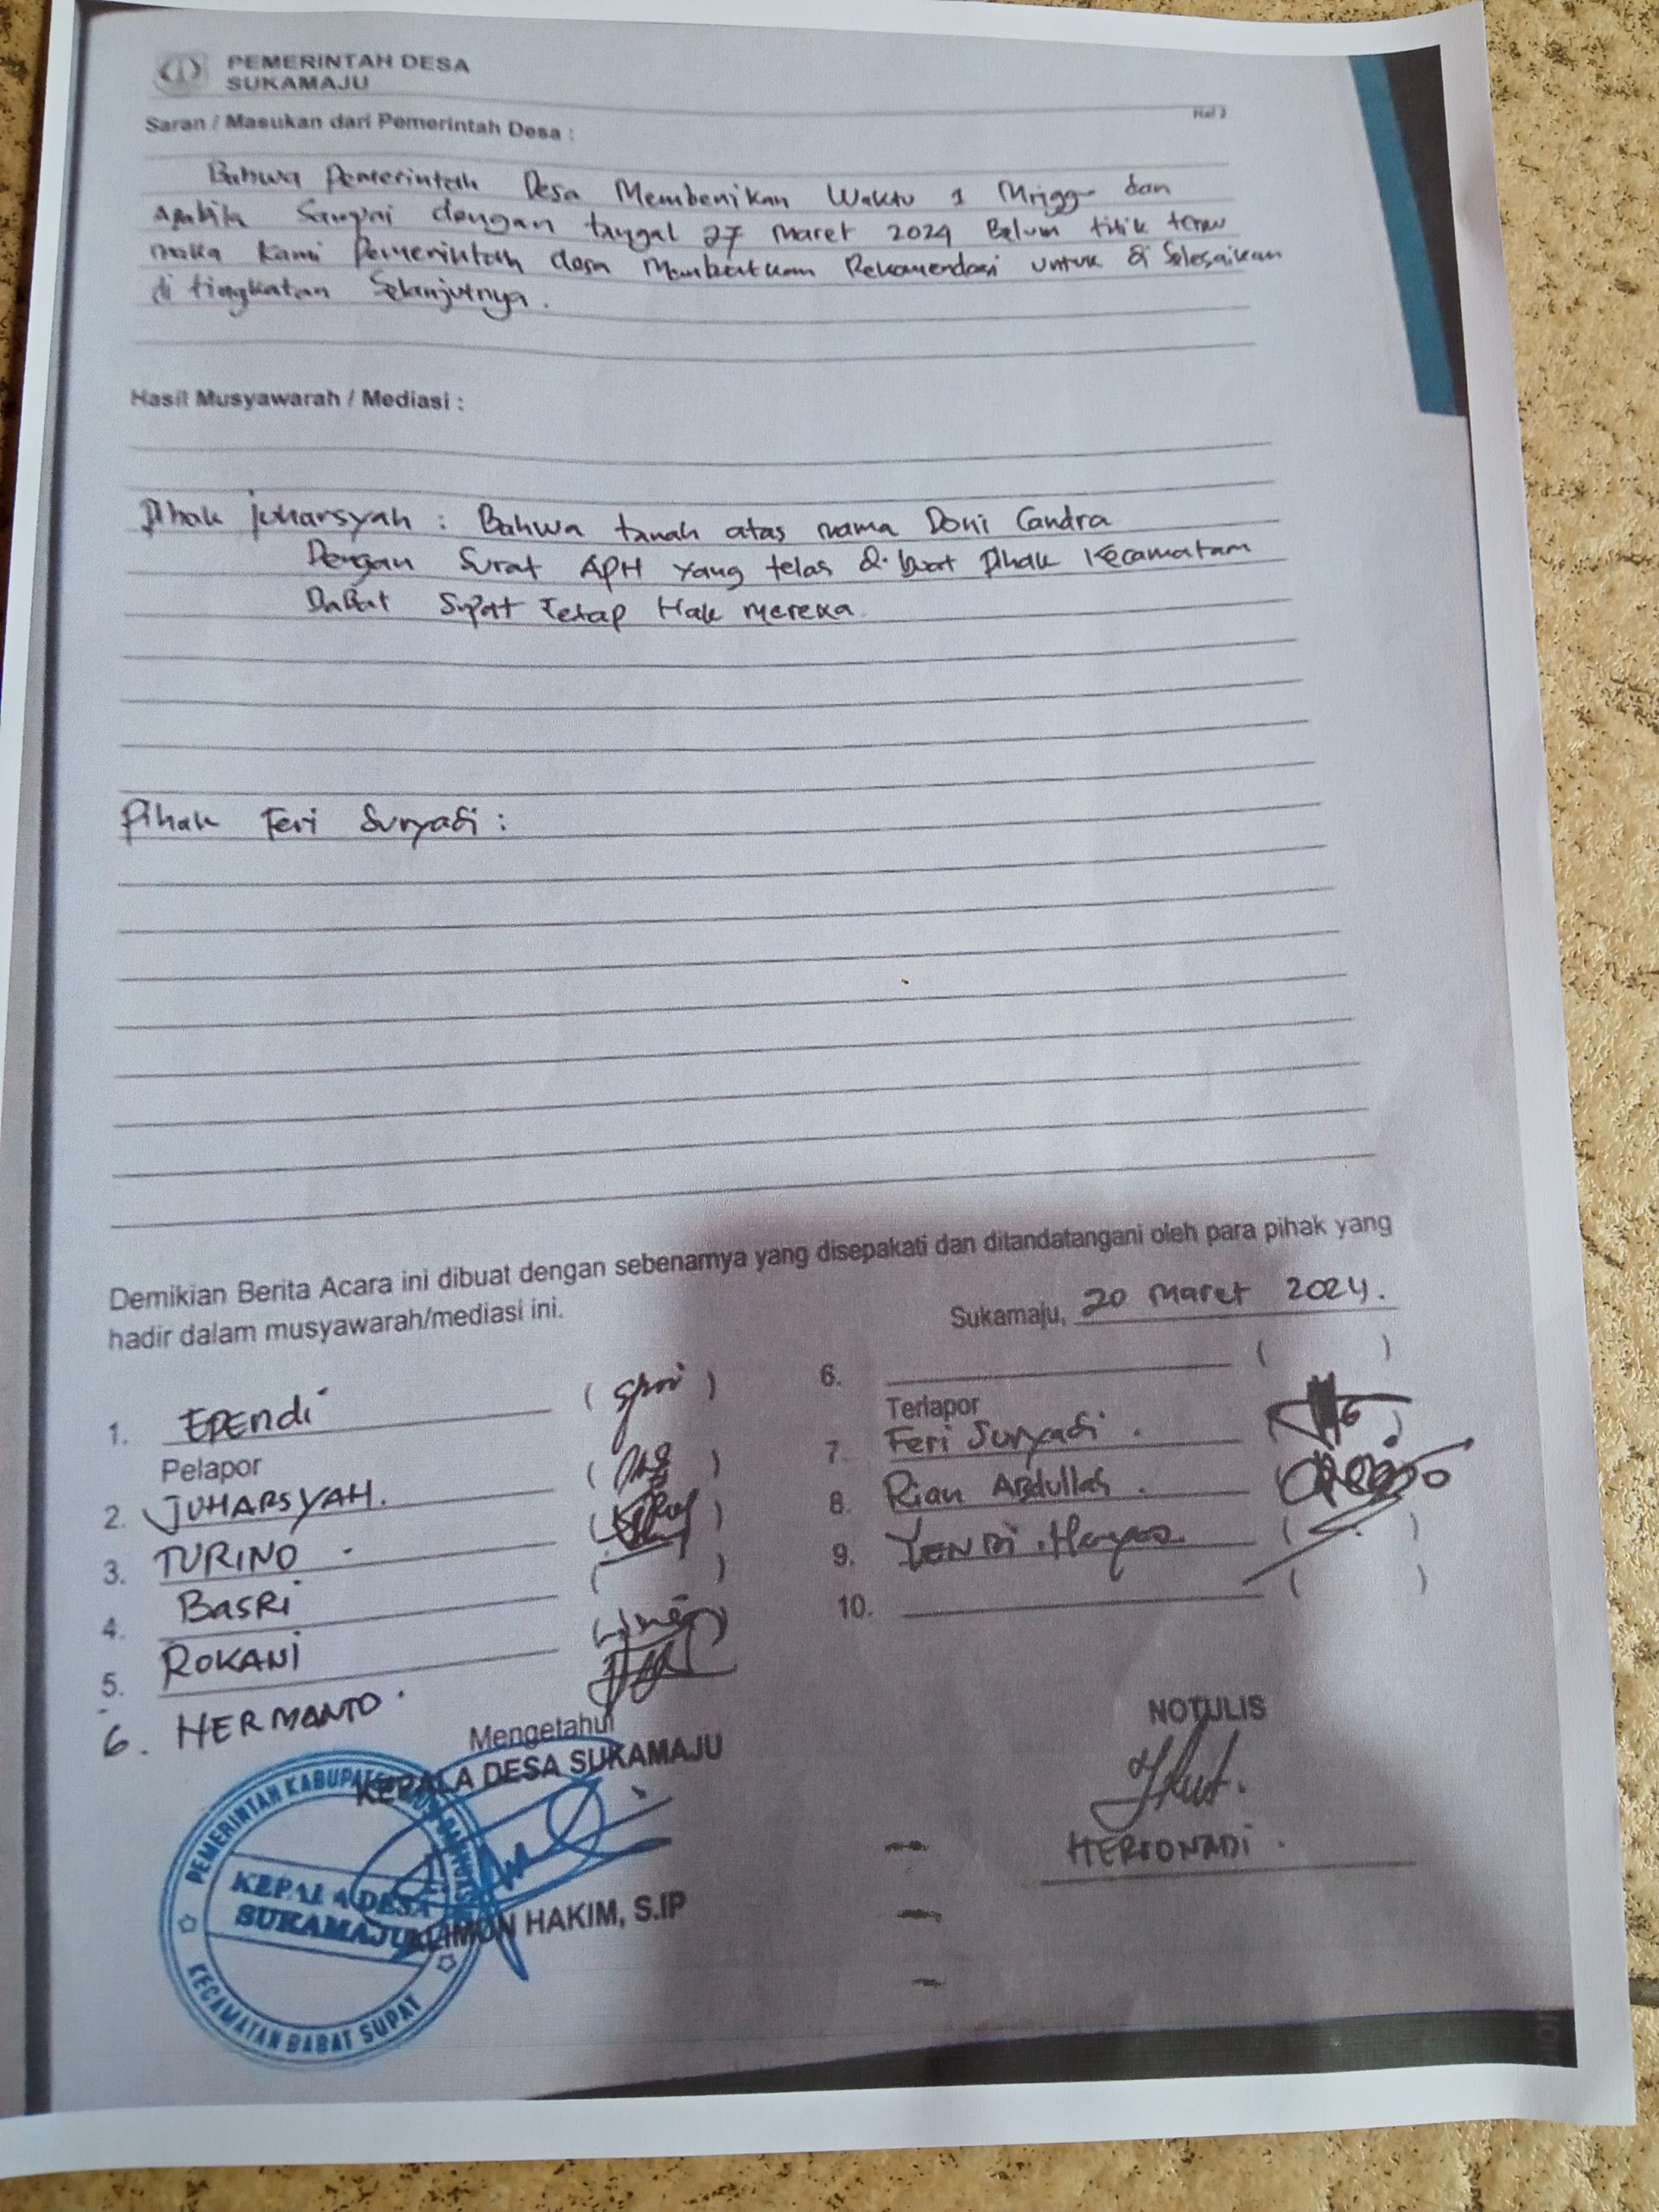 PEMERINTAH DESA
SUKAMAJU
Hal 2
Saran / Masukan dari Pemerintah Desa :
Bahwa Pemerintah Desa Membenikan Waktu 1 Minggu dan
Apabila Sampai dengan tanggal 27 Maret 2024 Belum titik temu
maka Kami Pemerintah desa Membuatkan Rekomendasi untuk di Selesaikan
di tingkatan Selanjutnya.
Hasil Musyawarah / Mediasi :
Pihak Juharsyah : Bahwa tanah atas nama Doni Candra
Dengan Surat APH yang telas di buat Pihak Kecamatam
BaBat Supat Tetap Hak mereka.
Pihak Feri Suryadi :
Demikian Berita Acara ini dibuat dengan sebenarnya yang disepakati dan ditandatangani oleh para pihak yang
hadir dalam musyawarah/mediasi ini.
Sukamaju, 20 Maret 2024.
1. EPENdi ( )
Pelapor
2. JUHARSYAH. ( )
3. TURINO ( )
4. BASRi ( )
5. ROKANI
6. HERMANTO.
6. ( )
Terlapor
7. Feri Suryadi .
8. Rian Abdullah .
9. YENDI ( )
10. ( )
Mengetahui
KEPALA DESA SUKAMAJU
ALIMUN HAKIM, S.IP
PEMERINTAH KABUPATEN MUSI BANYUASIN
KEPALA DESA
SUKAMAJU
KECAMATAN BABAT SUPAT
NOTULIS
HERIONADI .